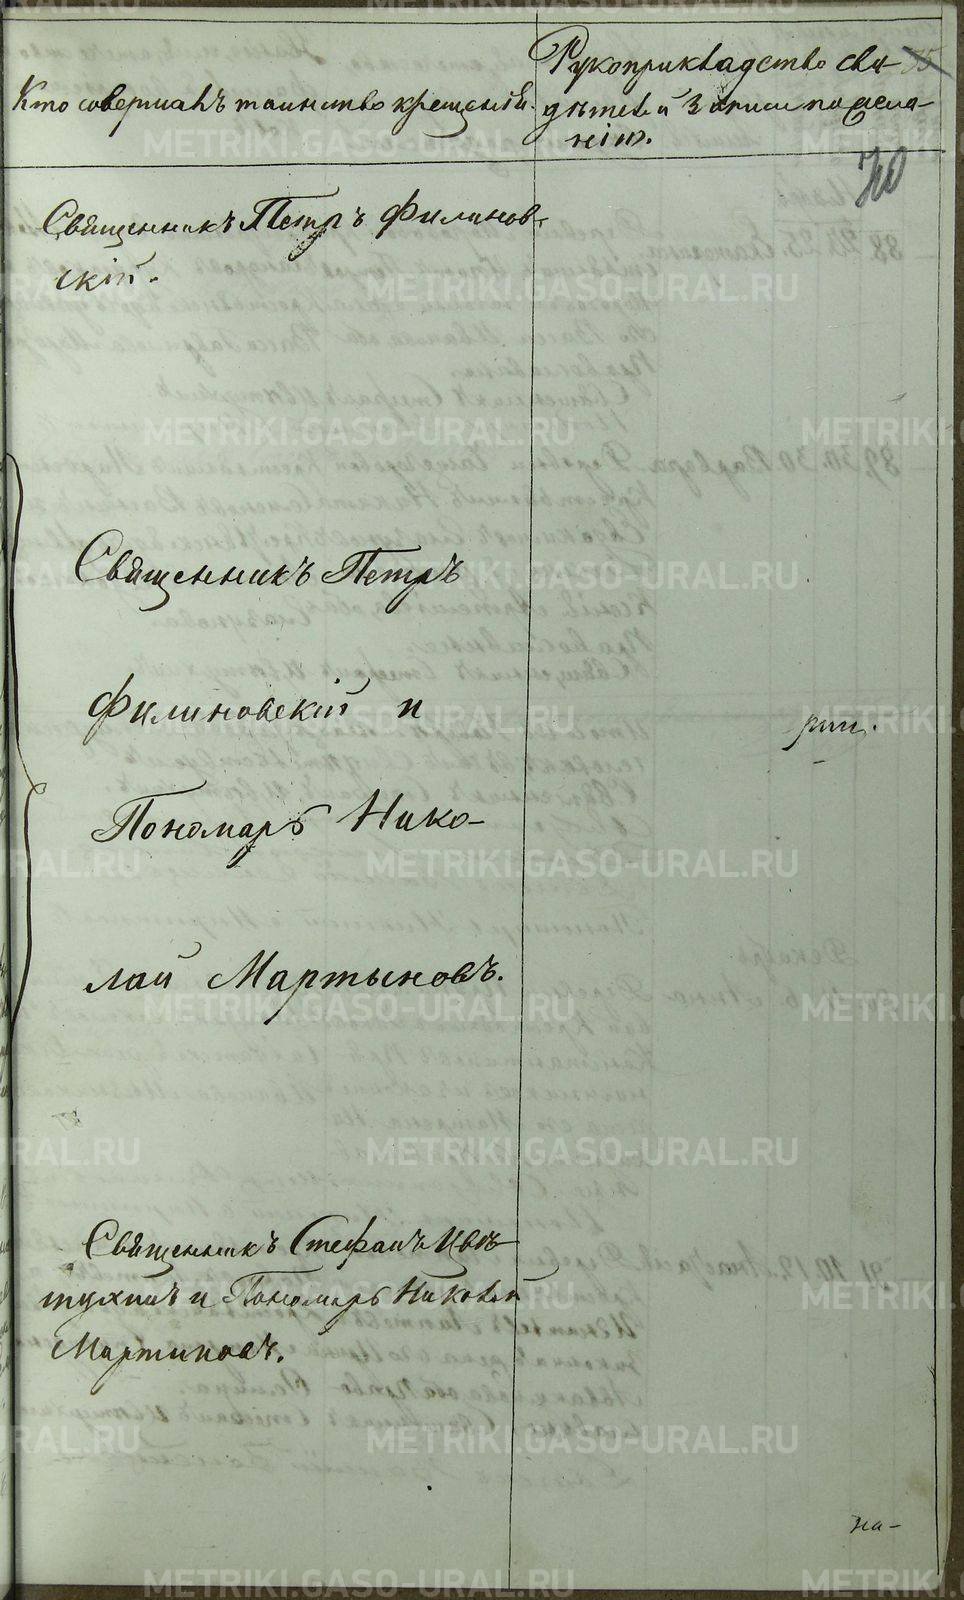 Кто совершалъ таинство крещенія.
Рукоприкладство сви-
дѣтелей записи по жела-
нію.
75
70
Священникъ Петръ Филинов-
скій.
Священникъ Петръ
Филиновскій и
Пономарь Нико-
лай Мартыновъ.
Священникъ Стефанъ Цвѣ-
тухинъ и Пономарь Николай
Мартиновъ.
на-
METRIKI.GASO-URAL.RU